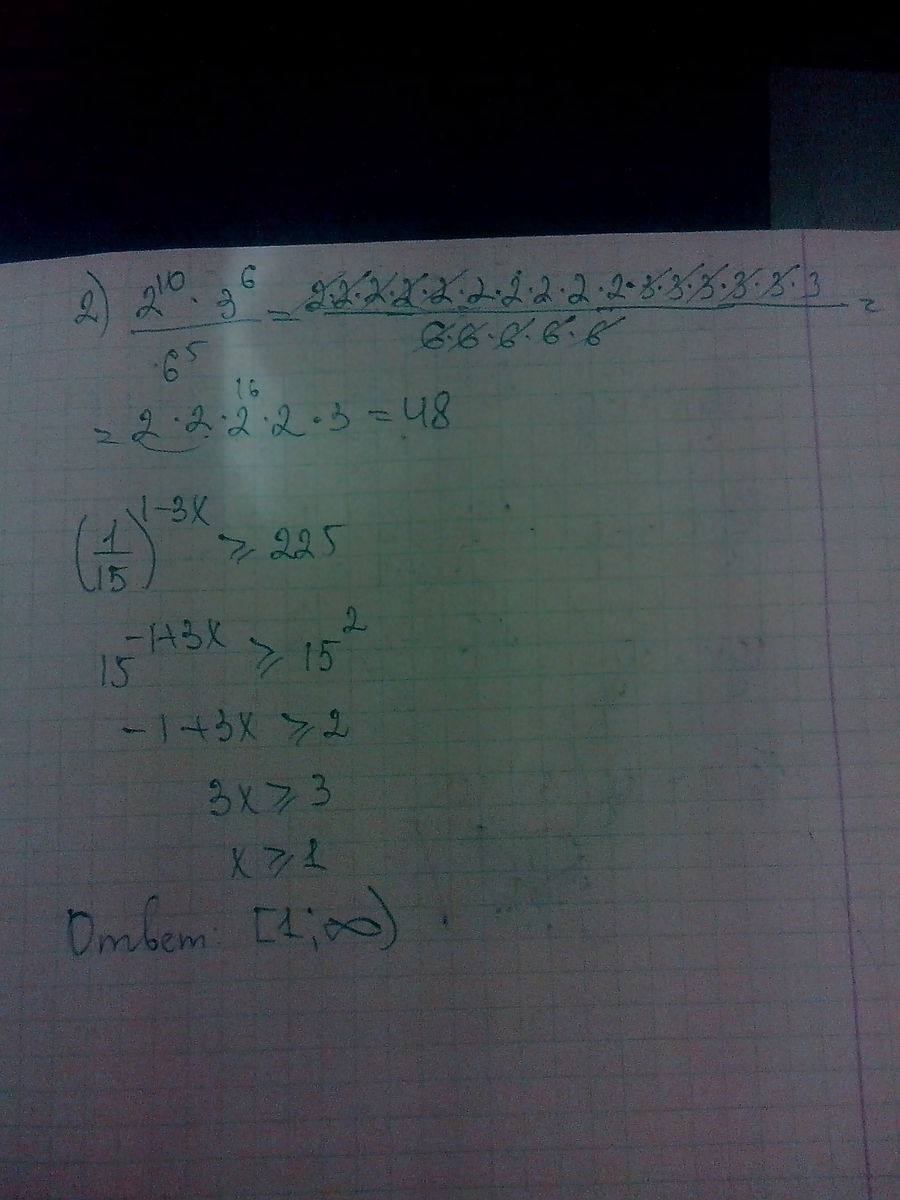 2) (2^10 · 3^6)/(6^5) = (2·2·2·2·2·2·2·2·2·2·3·3·3·3·3·3)/(6·6·6·6·6) =
= 2·2·2·2·3 = 48
16
(1/15)^(1-3x) ⩾ 225
15^(-1+3x) ⩾ 15^2
-1+3x ⩾ 2
3x ⩾ 3
x ⩾ 1
Ответ: [1; ∞)